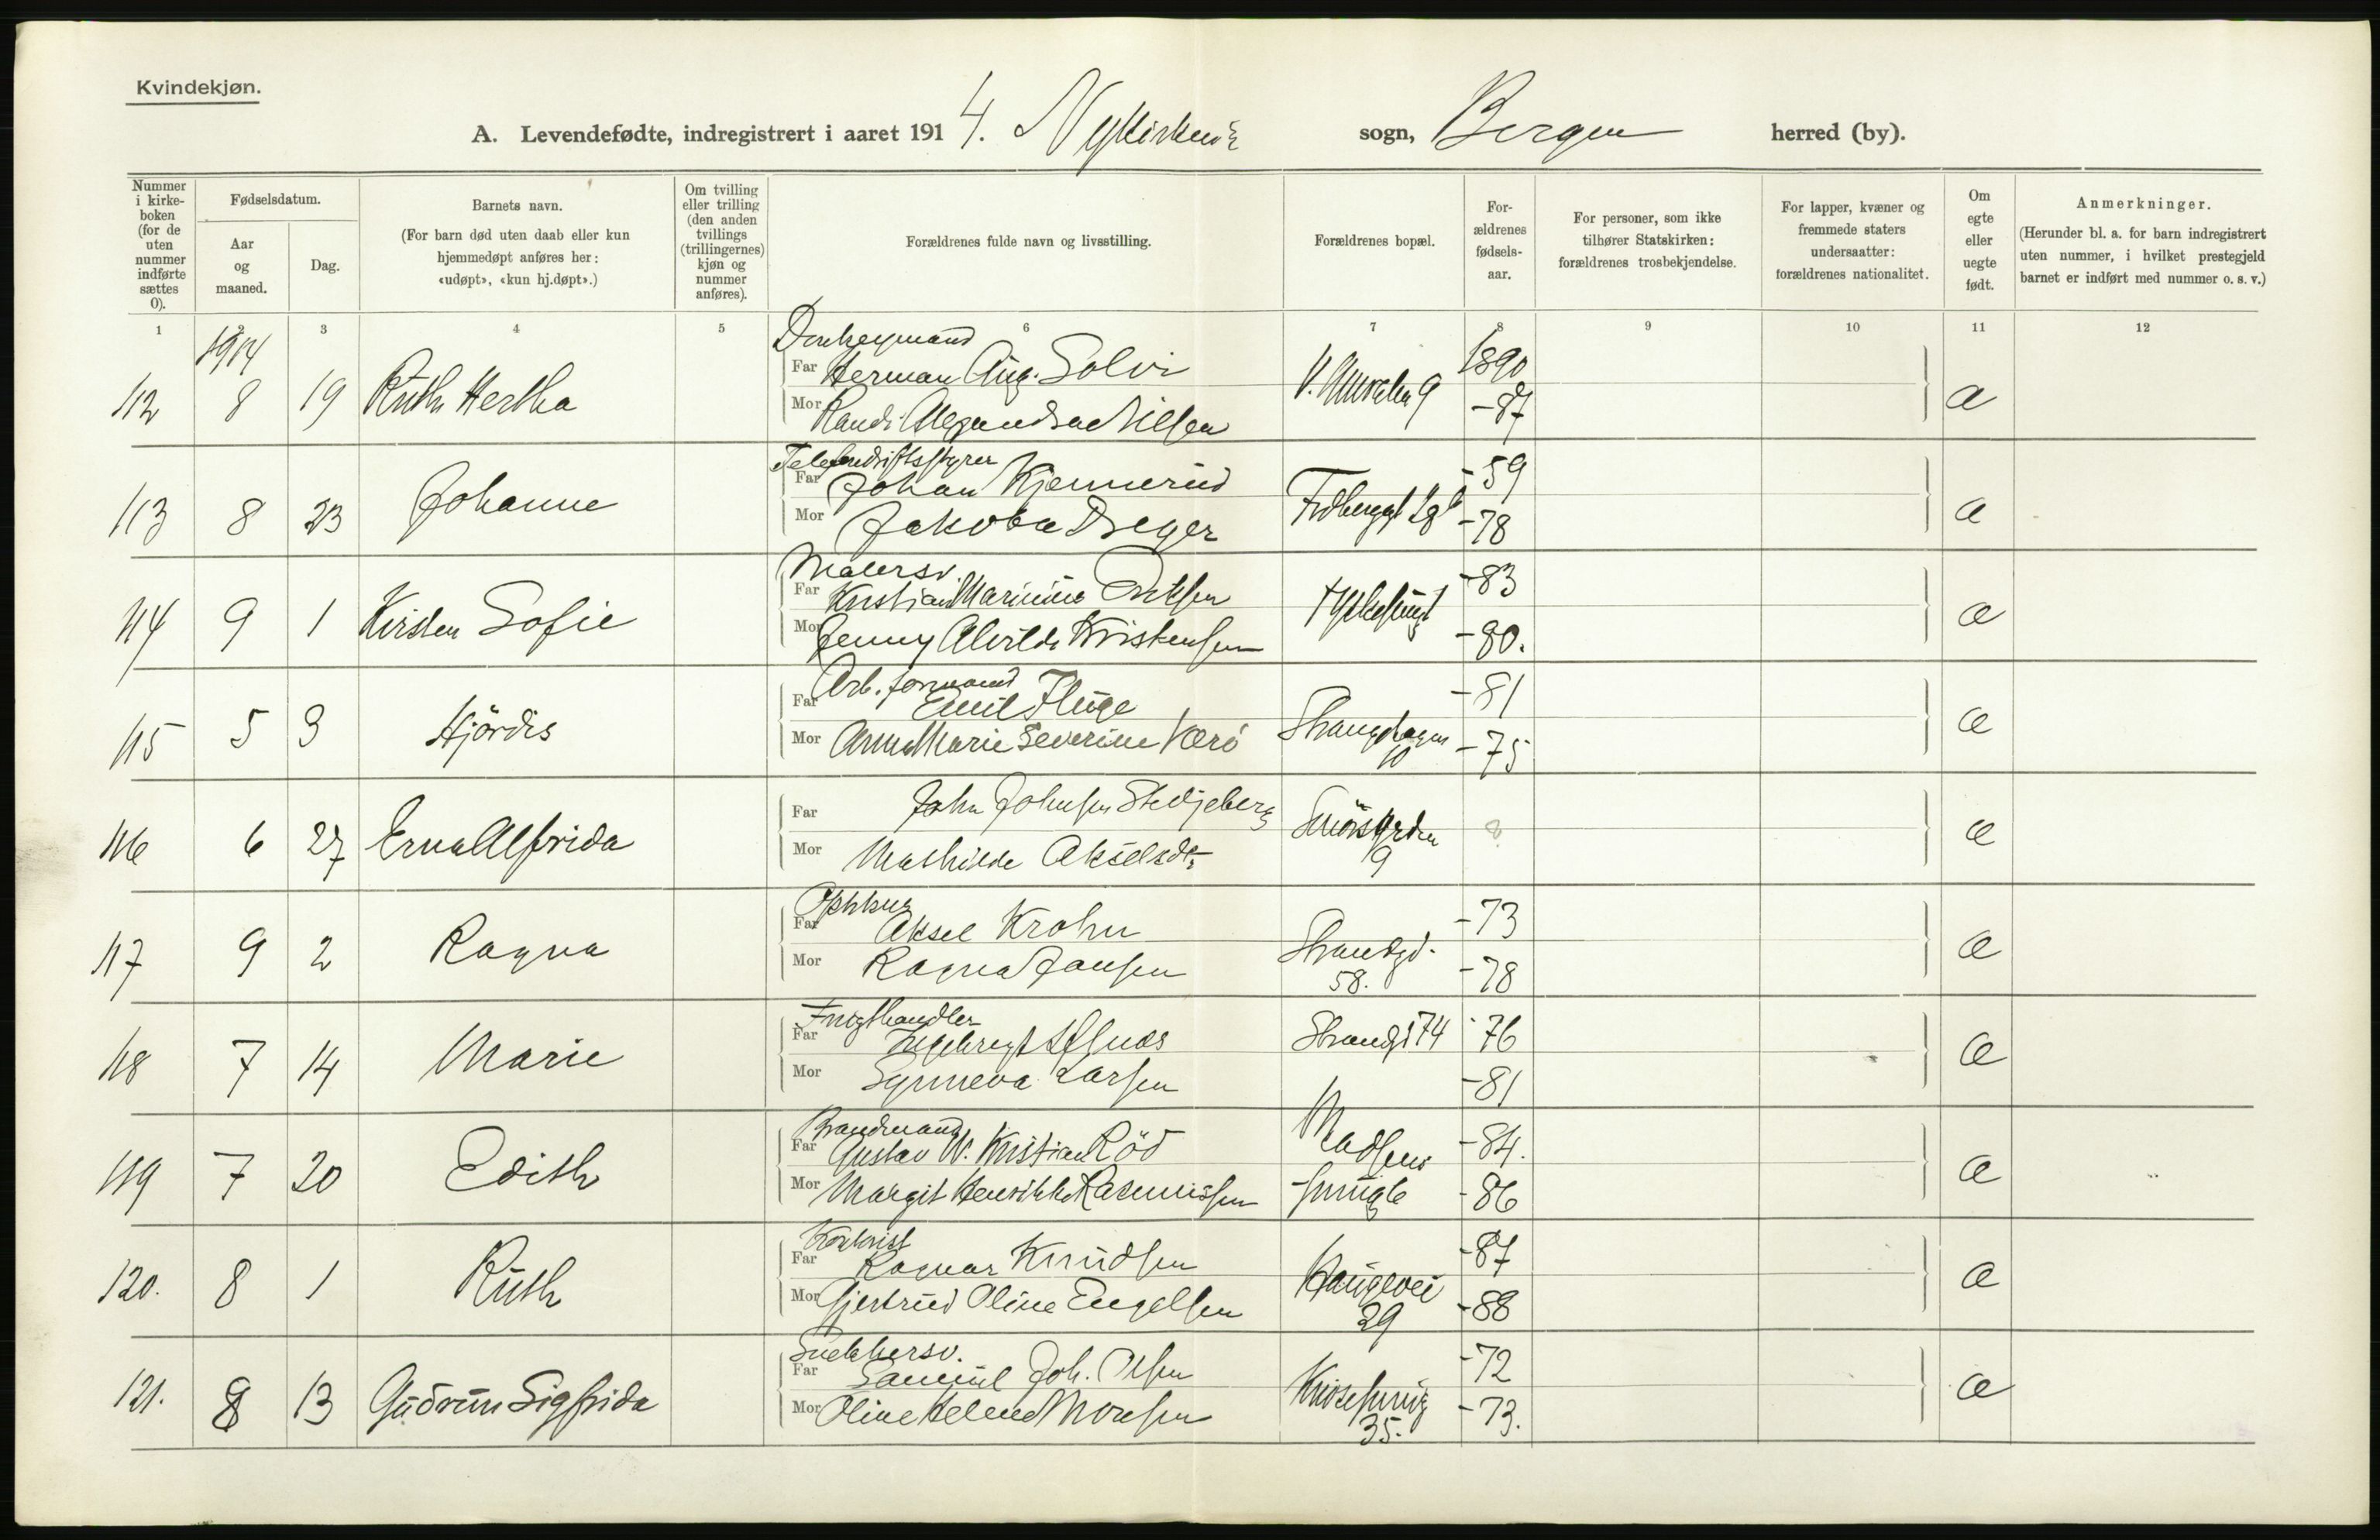 Kvindekjøn.
A. Levendefødte, indregistrert i aaret 1914. Nykirkens sogn, Bergen herred (by).
Nummer i kirke-boken (for de uten nummer indførte sættes 0).
Fødselsdatum.
Aar og maaned.
Dag.
Barnets navn.
(For barn død uten daab eller kun hjemmedøpt anføres her: «udøpt», «kun hj.døpt».)
Om tvilling eller trilling (den anden tvillings (trillingernes) kjøn og nummer anføres).
Forældrenes fulde navn og livsstilling.
Forældrenes bopæl.
For-ældrenes fødsels-aar.
For personer, som ikke tilhører Statskirken: forældrenes trosbekjendelse.
For lapper, kvæner og fremmede staters undersaatter: forældrenes nationalitet.
Om egte eller uegte født.
Anmerkninger.
(Herunder bl. a. for barn indregistrert uten nummer, i hvilket prestegjeld barnet er indført med nummer o. s. v.)
1 2 3 4 5 6 7 8 9 10 11 12
1914
Donkeymand
112 8 19 Ruth Hertha Far Herman Aug. Solvi 1890
Mor Randi Alexandra Nilsen V. Muralm 9 -87 a
113 8 23 Johanne Far Johan Kjennerud -59
Mor Jakoba Dreyer -78 a
Malersv.
114 9 1 Kirsten Sofie Far Kristian Marinius -83
Mor Jenny Alvilde Kristensen -80. a
Arb. formand
115 5 3 Hjördis Far Emil Fluge -81
Mor Anna Marie Severine Værö Strangehagen 10 -75 a
116 6 27 Erna Alfrida Far John Johnsen Stedjeberg
Mor Mathilde Akselsdtr. Smörsgrden 9 ? a
117 9 2 Ragna Far Aksel Krohn -73
Mor Ragna Jansen Strandgd. 58. -78 a
Frugthandler
118 7 14 Marie Far Strandgt 74 -76
Mor Synneva Larsen -81 a
Brandmand
119 7 20 Edith Far Gustav W. Kristian Röd -84.
Mor Margit Henrikke Rasmussen Madsens smug 6 -86 a
Kontorist
120. 8 1 Ruth Far Ragnar Knudsen -87
Mor Gjertrud Oline Engelsen Haugevei 29 -88 a
Snekkersv.
121. 8 13 Gudrun Sigfrida Far Samuel Joh. Olsen -72
Mor Oline Helene Monsen Knösesmug 35. -73. a